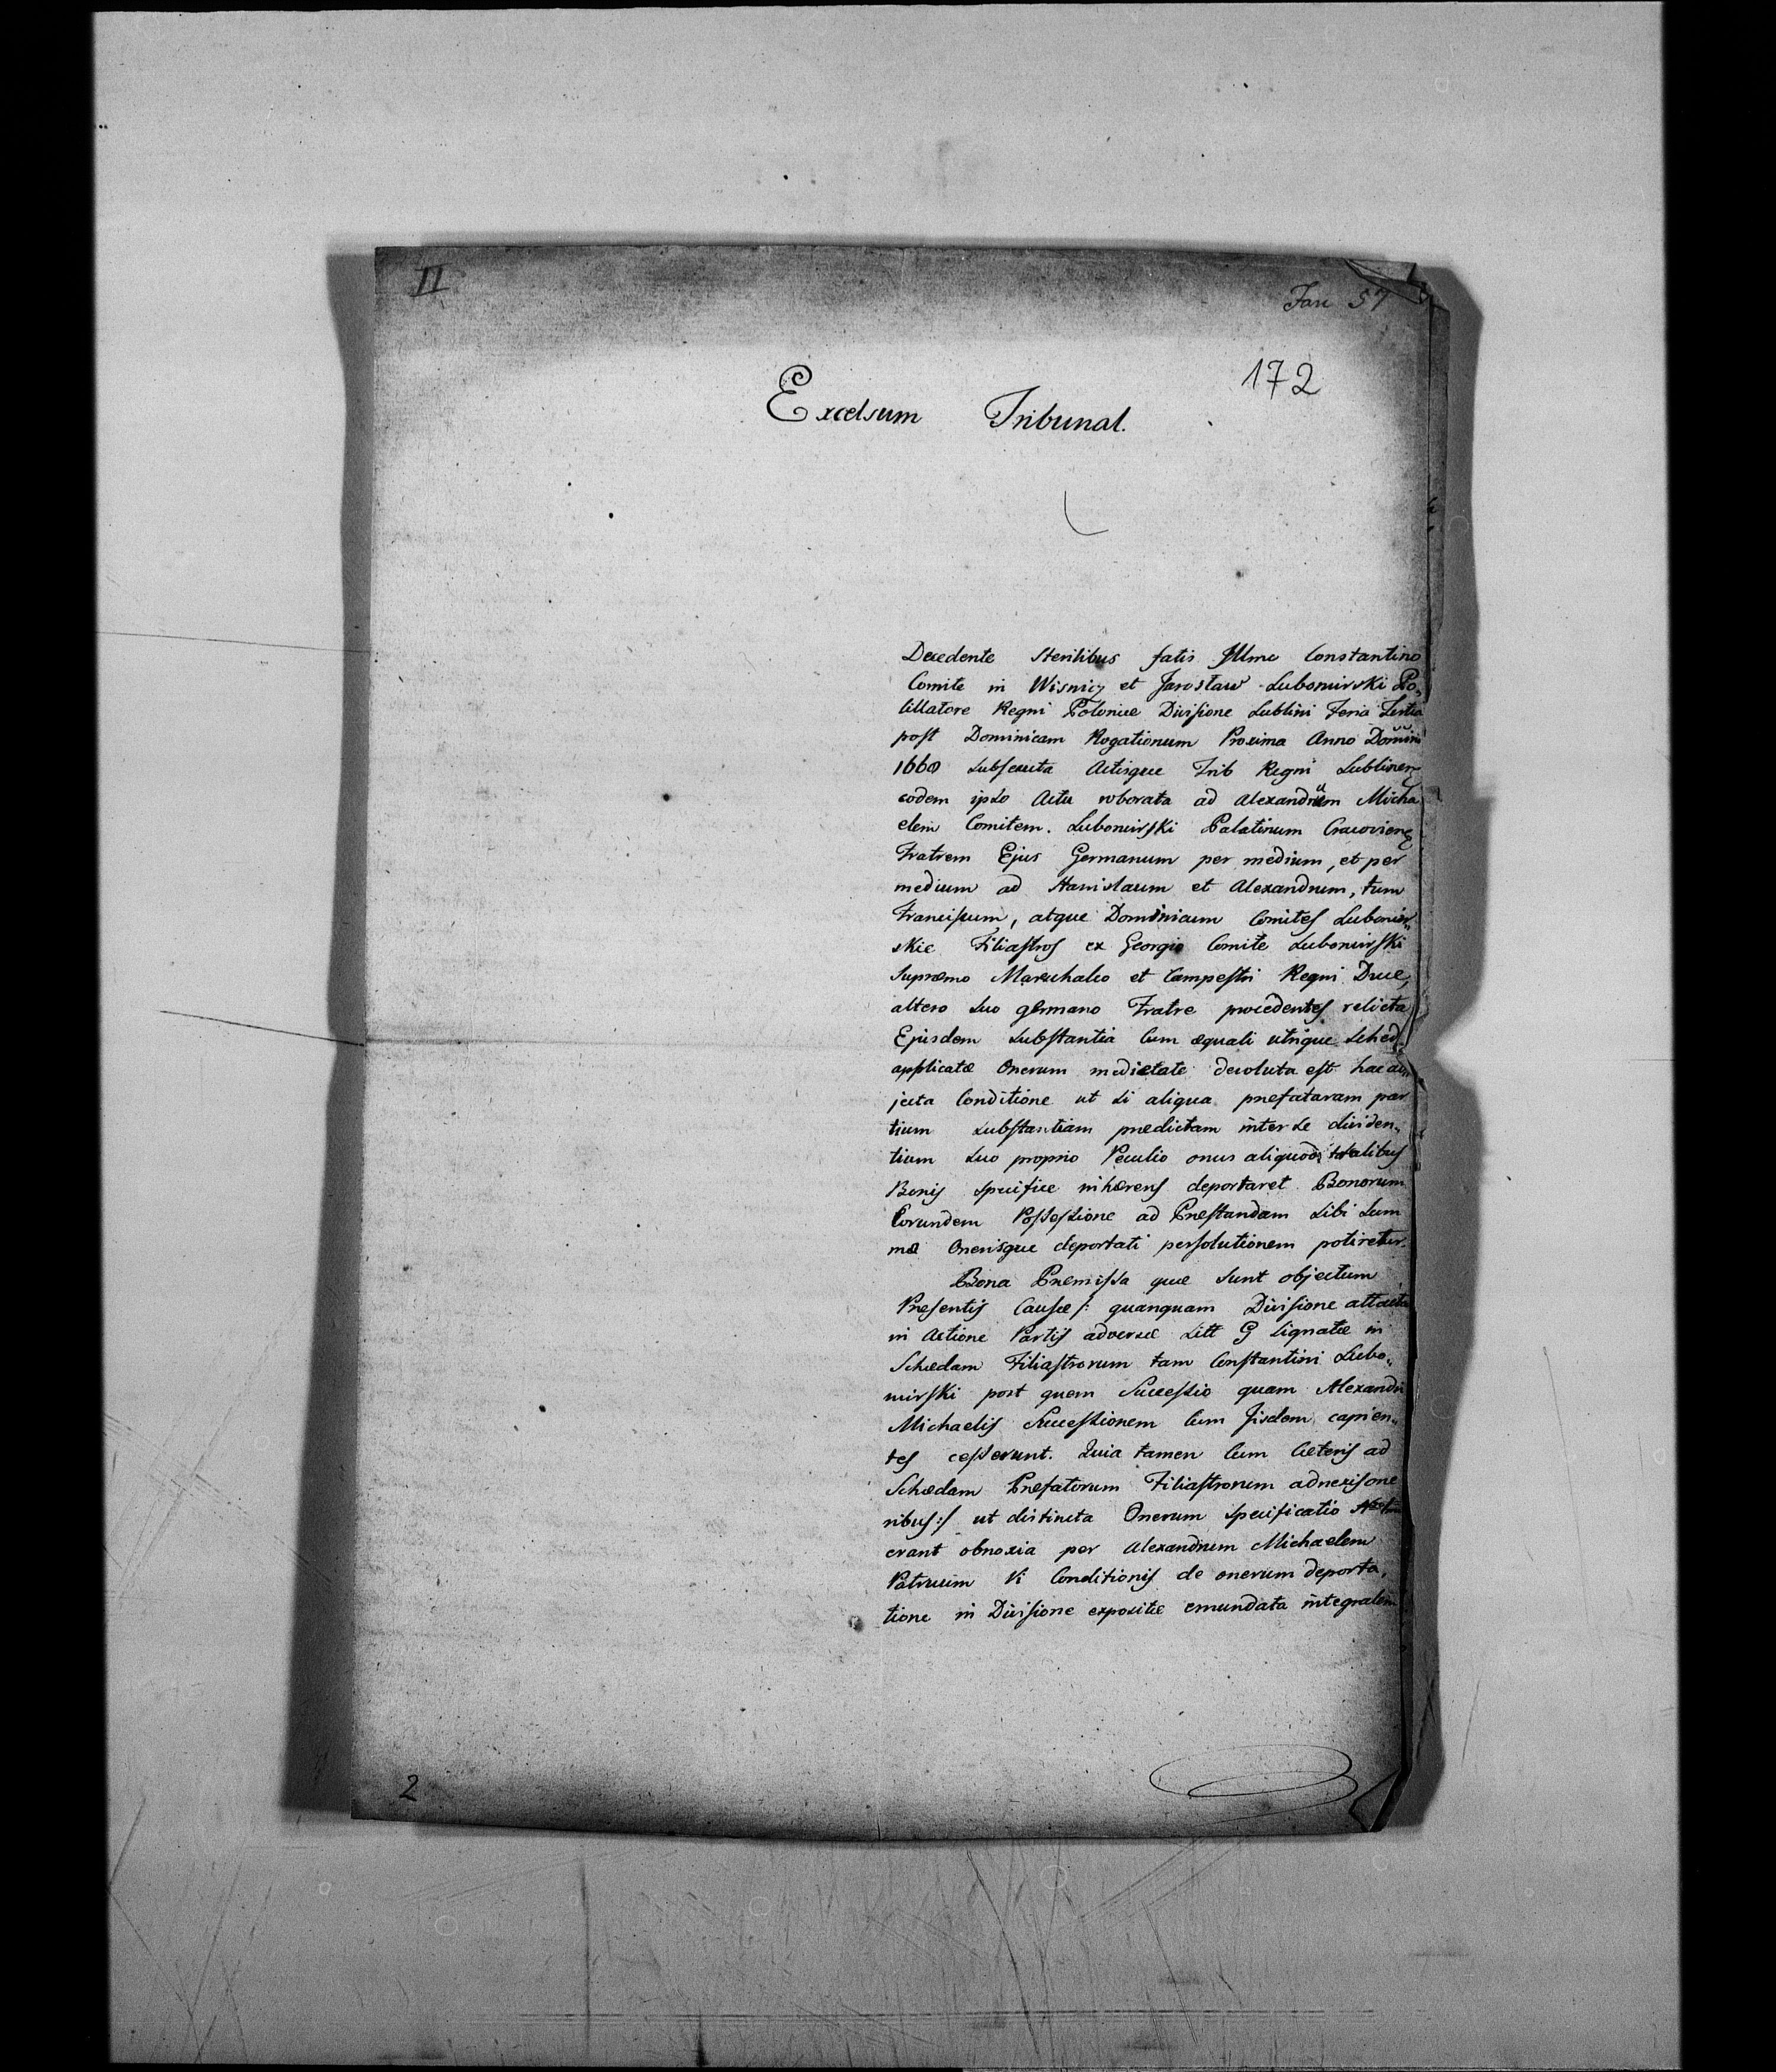 II
Fasc 57
172
Excelsum Tribunal.
Decedente sterilibus fatis Illmo Constantino
Comite in Wisnicz et Jarosław Lubomirski Po„
cillatore Regni Poloniæ Divisione Lublini Feria Tertia
post Dominicam Rogationum Proxima Anno Domini
1660 subsecuta Actisque Trib Regni Lublinen
eodem ipso Actu roborata ad Alexandrum Micha
elem Comitem. Lubomirski Palatinum Cracovien
Fratrem Ejus Germanum per medium, et per
medium ad Stanislaum et Alexandrum, tum
Franciscum, atque Dominicum Comites Lubomir„
skie Filiastros ex Georgio Comite Lubomirski
Supræmo Mareschalco et Campestri Regni Duce,
altero suo germano Fratre procedentes relicta
Ejusdem substantia cum æquali utrique sched„
applicatæ Onerum medietate devoluta est hac ad„
jecta Conditione ut si aliqua prefataram par
tium substantiam predictam inter se dividen„
tium suo proprio Peculio onus aliquod talibus
Bonis specifice inhærens deportaret Bonorum
Eorundem Possessione ad Præstandam sibi sum
mæ Onerisque deportati persolutionem potiretur.
Bona Premissa quæ sunt objectum
Presentis Causæ/: quanquam Divisione attacta
in Actione Partis adversæ Litt G signatæ in
Schedam Filiastrorum tam Constantini Lubo„
mirski post quem Successio quam Alexandri
Michaelis Successionem cum Iisdem capien„
tes cesserunt. Quia tamen cum Cæteris ad
Schedam Prefatorum Filiastrorum adnexis one
ribus:/ ut distincta Onerum specificatio
erant obnoxia per Alexandrum Michaelem
Patruum Vi Conditionis de onerum deporta„
tione in Divisione expositæ emundata integralem
2